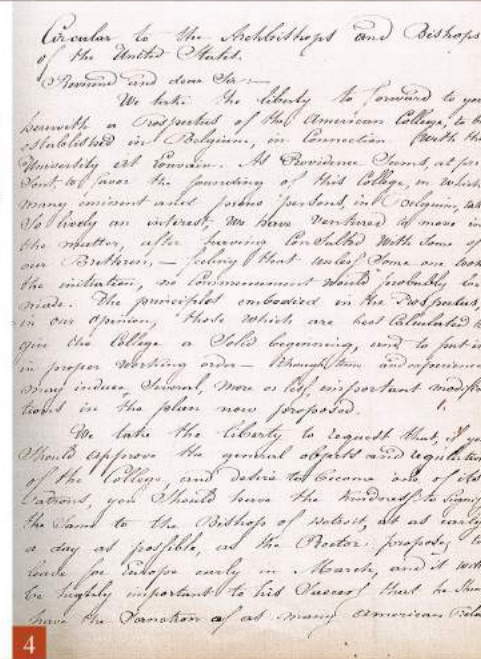 Circular to the Archbishops and Bishops
of the United States.
Reverend and dear Sir:—
We take the liberty to forward to you
herewith a Prospectus of the American College, to be
established in Belgium, in Connection with the
University at Louvain. As Providence seems, at pre-
sent, to favor the founding of this College, in which
many eminent and pious persons, in Belgium, take
so lively an interest, we have ventured to move in
the matter, after having Consulted with some of
our Brethren,— feeling that unless some one took
the initiation, no Commencement would probably be
made. The principles embodied in the Prospectus,
in our opinion, those which are best Calculated to
give the College a solid beginning, and to put it
in proper working order— though time and experience
may induce, several, more or less, important modifica
tions in the plan now proposed.
We take the liberty to request that, if you
should approve the general objects and regulations
of the College, and desire to become one of its
Patrons, you should have the kindness to signify
the same to the Bishop of Detroit, at as early
a day as possible, as the Rector proposes to
leave for Europe early in March, and it will
be highly important to his Success that he should
have the Sanction of as many American Prela
4